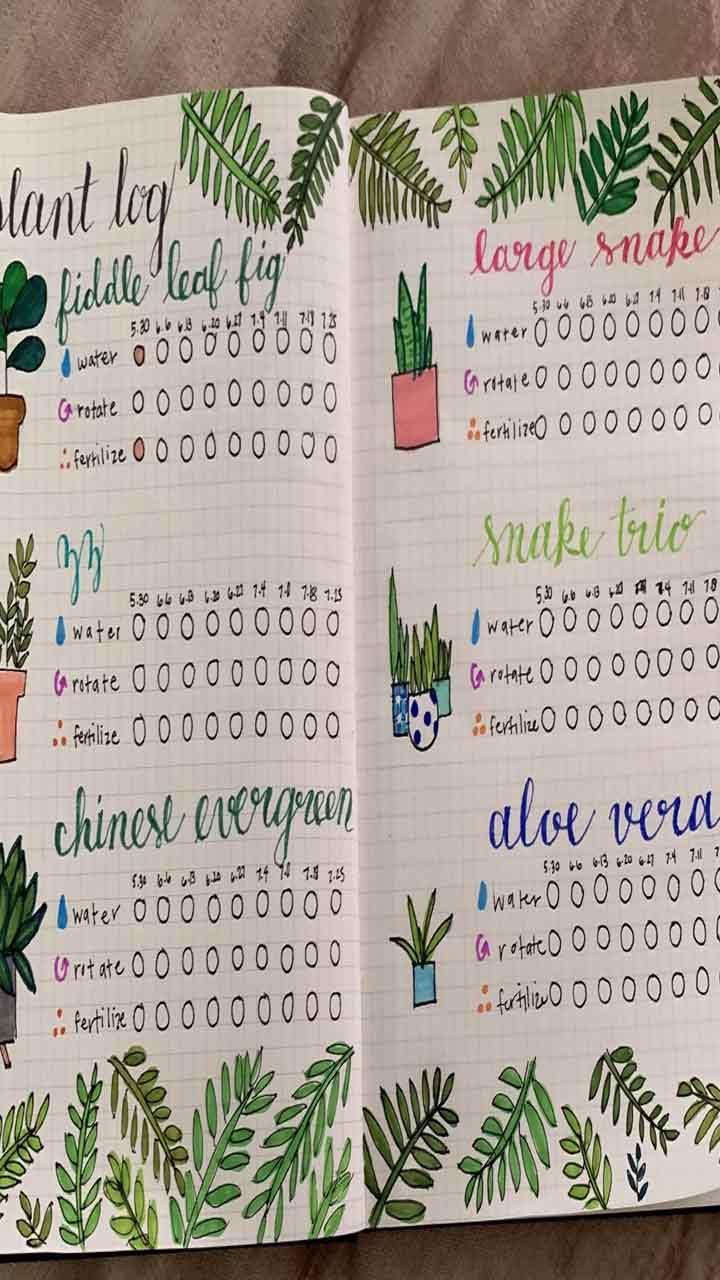 plant log
fiddle leaf fig
5.30 6.6 6.13 6.20 6.27 7.4 7.11 7.18 7.25
water
rotate
fertilize
zz
5.30 6.6 6.13 6.20 6.27 7.4 7.11 7.18 7.25
water
rotate
fertilize
chinese evergreen
5.30 6.6 6.13 6.20 6.27 7.4 7.11 7.18 7.25
water
rotate
fertilize
large snake
5.30 6.6 6.13 6.20 6.27 7.4 7.11 7.18
water
rotate
fertilize
snake trio
5.30 6.6 6.13 6.20 7.4 7.11 7.18
water
rotate
fertilize
aloe vera
5.30 6.6 6.13 6.20 6.27 7.4 7.11
water
rotate
fertilize